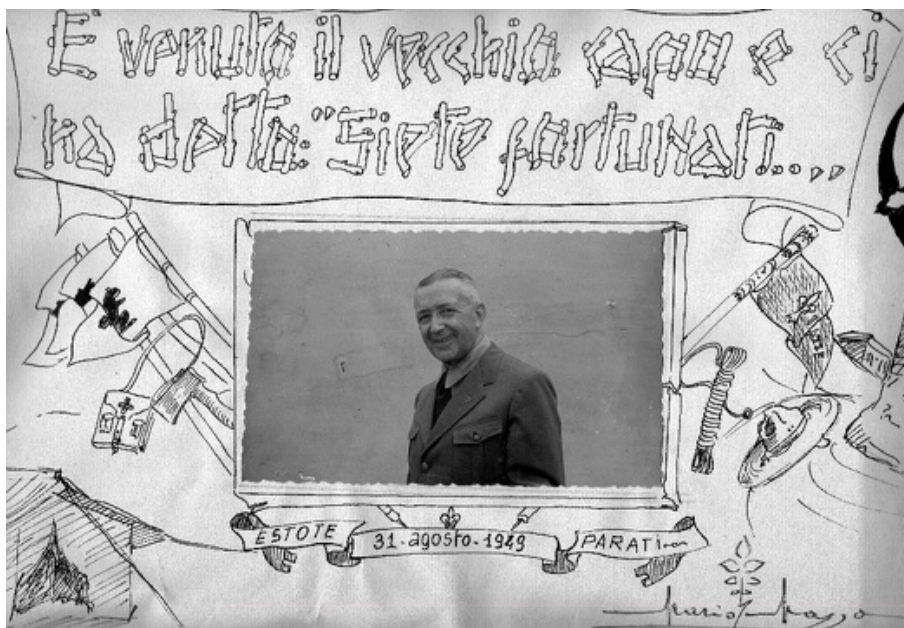 E' venuto il vecchio capo e ci
ha detto: "Siete fortunati..."
ESTOTE 31·agosto·1949 PARATI